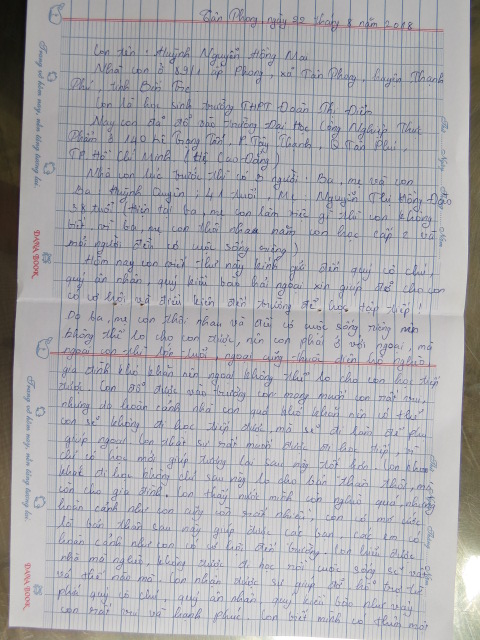 Tân Phong, ngày 22 tháng 8 năm 2018
Con tên : Huỳnh Nguyễn Hồng Mai
Nhà con ở 89/1 ấp Phong, xã Tân Phong, huyện Thạnh
Phú, tỉnh Bến Tre
Con là học sinh trường THPT Đoàn Thị Điểm
Nay con đã đỗ vào trường Đại Học Công Nghiệp Thực
Phẩm ở 140 Lê Trọng Tấn, P. Tây Thạnh, Q. Tân Phú,
TP. Hồ Chí Minh (Hệ Cao Đẳng)
Nhà con lúc trước thì có 3 người: Ba, mẹ và con
Ba Huỳnh 41 tuổi, Mẹ Nguyễn Thị Hồng Đào
38 tuổi (hiện tại ba, mẹ con làm việc gì thì con không
biết vì ba, mẹ con thôi nhau năm con học cấp 2 và
mỗi người đều có cuộc sống riêng)
Hôm nay con viết thư này kính gửi đến quý cô chú,
quý ân nhân, quý kiều bào hải ngoại xin giúp đỡ cho con
có cơ hội và điều kiện đến trường để học tập tiếp!
Do ba, mẹ con thôi nhau và đều có cuộc sống riêng nên
không thể lo cho con được, nên con phải ở với ngoại, mà
ngoại con thì lớn tuổi, ngoại cũng thuộc diện hộ nghèo
gia đình khó khăn nên ngoại không thể lo cho con học tiếp
được. Con đỗ được vào trường con mong muốn con rất vui,
nhưng do hoàn cảnh nhà con quá khó khăn nên có thể
con sẽ không đi học tiếp được, mà sẽ đi làm để phụ
giúp ngoại. Con thật sự rất muốn được đi học tiếp, vì
chỉ có học mới giúp tương lai sau này tốt hơn. Con
khát đi học không chỉ sau này lo cho bản thân thôi, mà
còn cho gia đình. Con thấy nước mình còn nghèo quá, những
hoàn cảnh như con cũng còn rất nhiều, con có mơ ước
là bản thân sau này giúp được các bạn, các em có
hoàn cảnh như con có cơ hội đến trường. Con hiểu được
nhà mà nghèo, không được đi học thì cuộc sống sẽ vất
vả thế nào mà. Con nhận được sự giúp đỡ hỗ trợ từ
phía quý cô chú, quý ân nhân, quý kiều bào như vậy
con rất vui và hạnh phúc. Con biết mình có thêm một
DANA BOOK
DANA BOOK
DANA BOOK